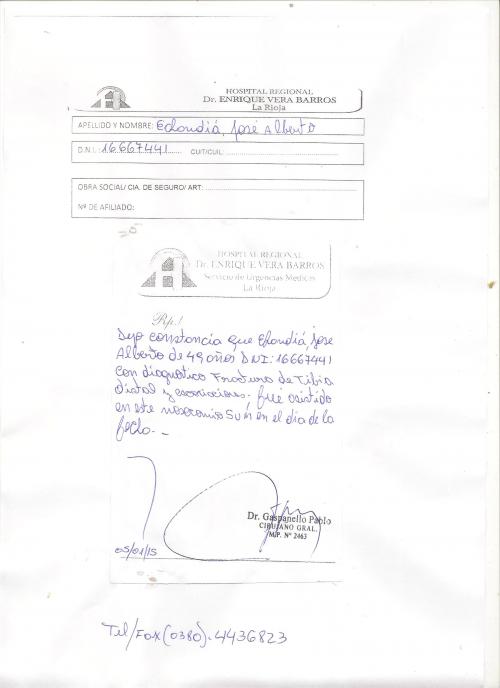 HOSPITAL REGIONAL
Dr. ENRIQUE VERA BARROS
La Rioja
APELLIDO Y NOMBRE: Elondiá, José Alberto
D.N.I.: 16667441 CUIT/CUIL:
OBRA SOCIAL/ CIA. DE SEGURO/ ART:
Nº DE AFILIADO:
HOSPITAL REGIONAL
Dr. ENRIQUE VERA BARROS
Servicio de Urgencias Medicas
La Rioja
Rp.:
Dejo constancia que Elondiá, Jose
Alberto de 49 años DNI: 16667441
con diagnostico Fractura de Tibia
Distal y escoriaciones. fué asistido
en este nosocomio en el dia de la
fecha.-
Dr. Gaspanello Pablo
CIRUJANO GRAL.
M.P. Nº 2463
05/01/15
Tel/Fax (0380). 4436823